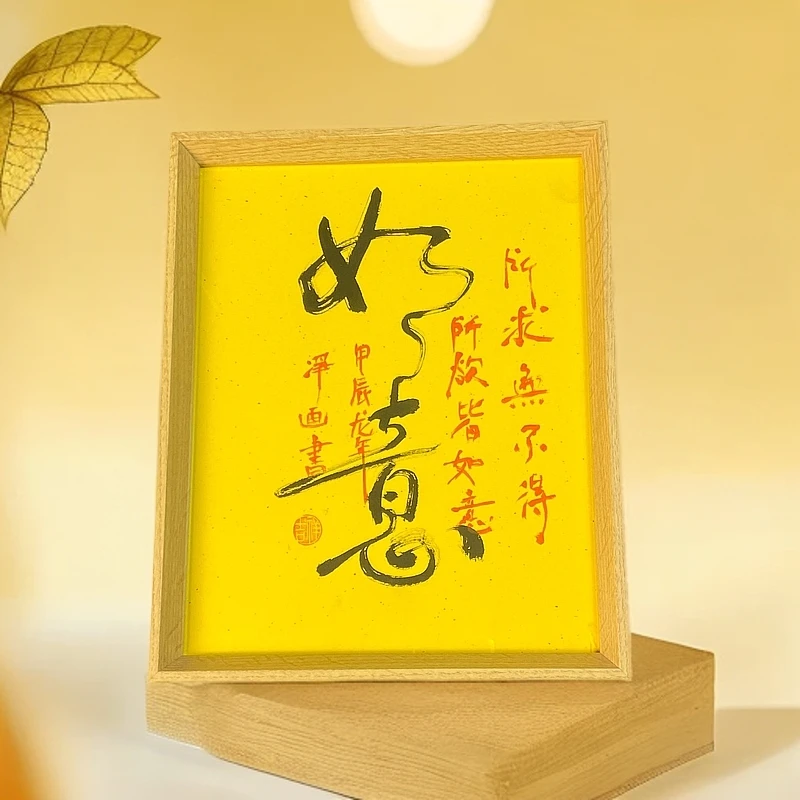 如意
所求無不得
所欲皆如意
甲辰龙年
淨画書